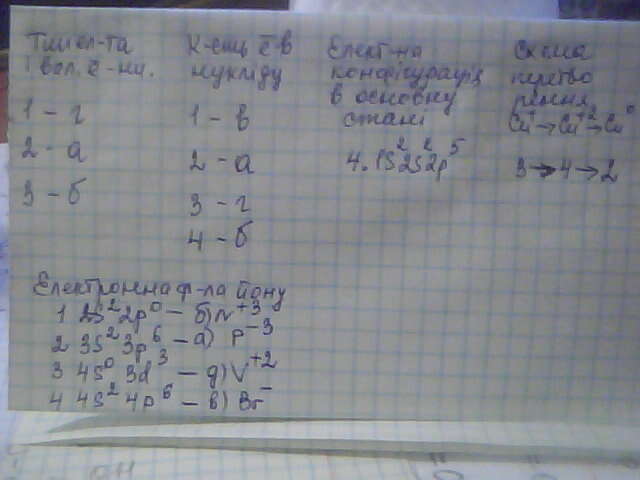 Тип ел-та
і вал. ē-ни.
1 - г
2 - а
3 - б
К-сть ē в
нукліду
1 - в
2 - а
3 - г
4 - б
Елект-на
конфігурація
в основну
стані
4. 1S²2S²2p⁵
Схема
перетво
рення
Cu⁺→Cu⁺²→Cu⁰
3→4→2
Електронна ф-ла йону
1 2S²2p⁰ - б) N⁺³
2 3S²3p⁶ - а) P⁻³
3 4S⁰ 3d³ - д) V⁺²
4 4S² 4p⁶ - в) Br⁻